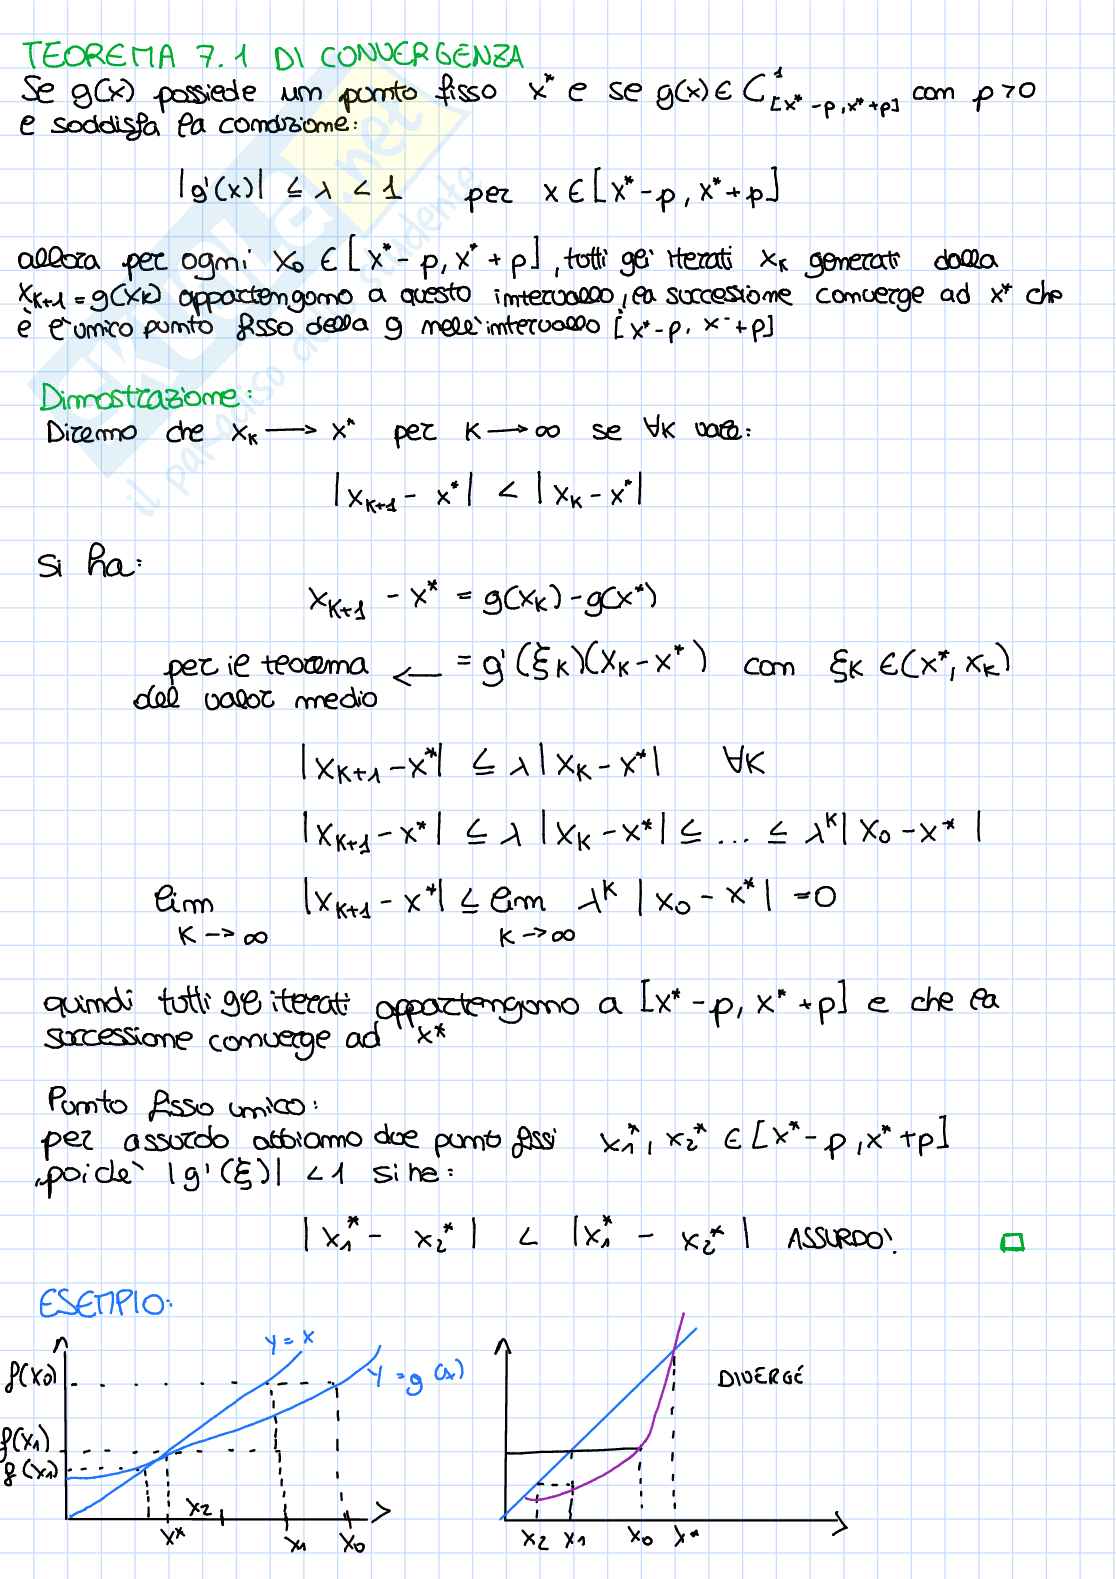 TEOREMA 7.1 DI CONVERGENZA
Se g(x) possiede un punto fisso x* e se g(x) ∈ C¹[x*-p, x*+p] con p>0
e soddisfa la condizione:
|g'(x)| ≤ λ < 1 per x ∈ [x*-p, x*+p]
allora per ogni x₀ ∈ [x*-p, x*+p], tutti gli iterati xₖ generati dalla
xₖ₊₁ = g(xₖ) appartengono a questo intervallo, la successione converge ad x* che
è l'unico punto fisso della g nell'intervallo [x*-p, x*+p]
Dimostrazione:
Diremo che xₖ → x* per k → ∞ se ∀k vale:
|xₖ₊₁ - x*| < |xₖ - x*|
Si ha:
xₖ₊₁ - x* = g(xₖ) - g(x*)
per il teorema ← = g'(ξₖ)(xₖ - x*) con ξₖ ∈ (x*, xₖ)
del valor medio
|xₖ₊₁ - x*| ≤ λ|xₖ - x*| ∀k
|xₖ₊₁ - x*| ≤ λ |xₖ - x*| ≤ ... ≤ λᵏ| x₀ - x* |
lim |xₖ₊₁ - x*| ≤ lim λᵏ | x₀ - x*| = 0
k → ∞ k → ∞
quindi tutti gli iterati appartengono a [x*-p, x*+p] e che la
successione converge ad x*
Punto fisso unico:
per assurdo abbiamo due punto fissi x₁*, x₂* ∈ [x*-p, x*+p]
poiché |g'(ξ)| < 1 si he:
|x₁* - x₂*| < |x₁* - x₂*| ASSURDO!
ESEMPIO:
y = x
f(x₀)
y = g(x)
DIVERGE
f(x₁)
x₂
x* x₁ x₀
x₂ x₁ x₀ x*